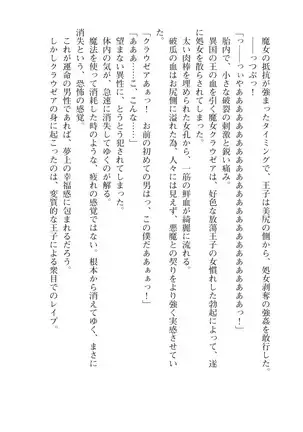 魔女の抵抗が強まったタイミングで、王子は美尻の側から、処女剥奪の強姦を敢行した。
――つつぷっ！
「うっ――っいやああああああああああああああああああああっ！」
胎内で、小さな破裂の刺激と鋭い痛み。
異国の王の血を引く魔女クラウゼアは、好色な放蕩王子の女慣れした勃起によって、遂
に処女を散らされてしまった。
太い肉棒を埋め込まれた女孔から、一筋の鮮血が綺麗に流れる。
破瓜の血はお尻側に溢れた為、人々には見えず、悪魔との契りをより強く実感させてい
た。
「クラウゼアあぁっ！　お前の初めての男はっ、この僕だああぁぁっ！」
「あああ……こ、こんな……っ」
望まない異性に、とうとう犯されてしまった。
体内の気が、急速に消失してゆくのが解る。
魔法を使って消耗した時のような、疲れの感覚ではない。根本から消えてゆく、まさに
消失という、恐怖の感覚。
これが運命の男性であれば、夢上の幸福感に包まれるだろう。
しかしクラウゼアの身に起こったのは、変質的な王子による衆目でのレイプ。